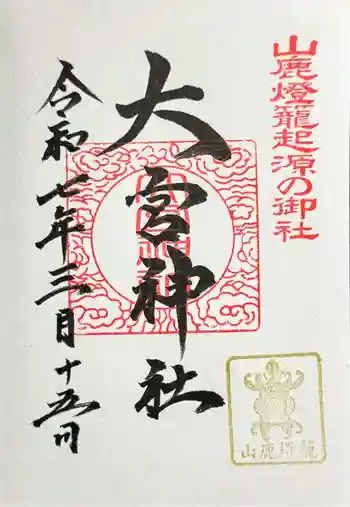 山鹿燈籠起源の御社
大宮神社
令和七年三月十五日
山鹿燈籠